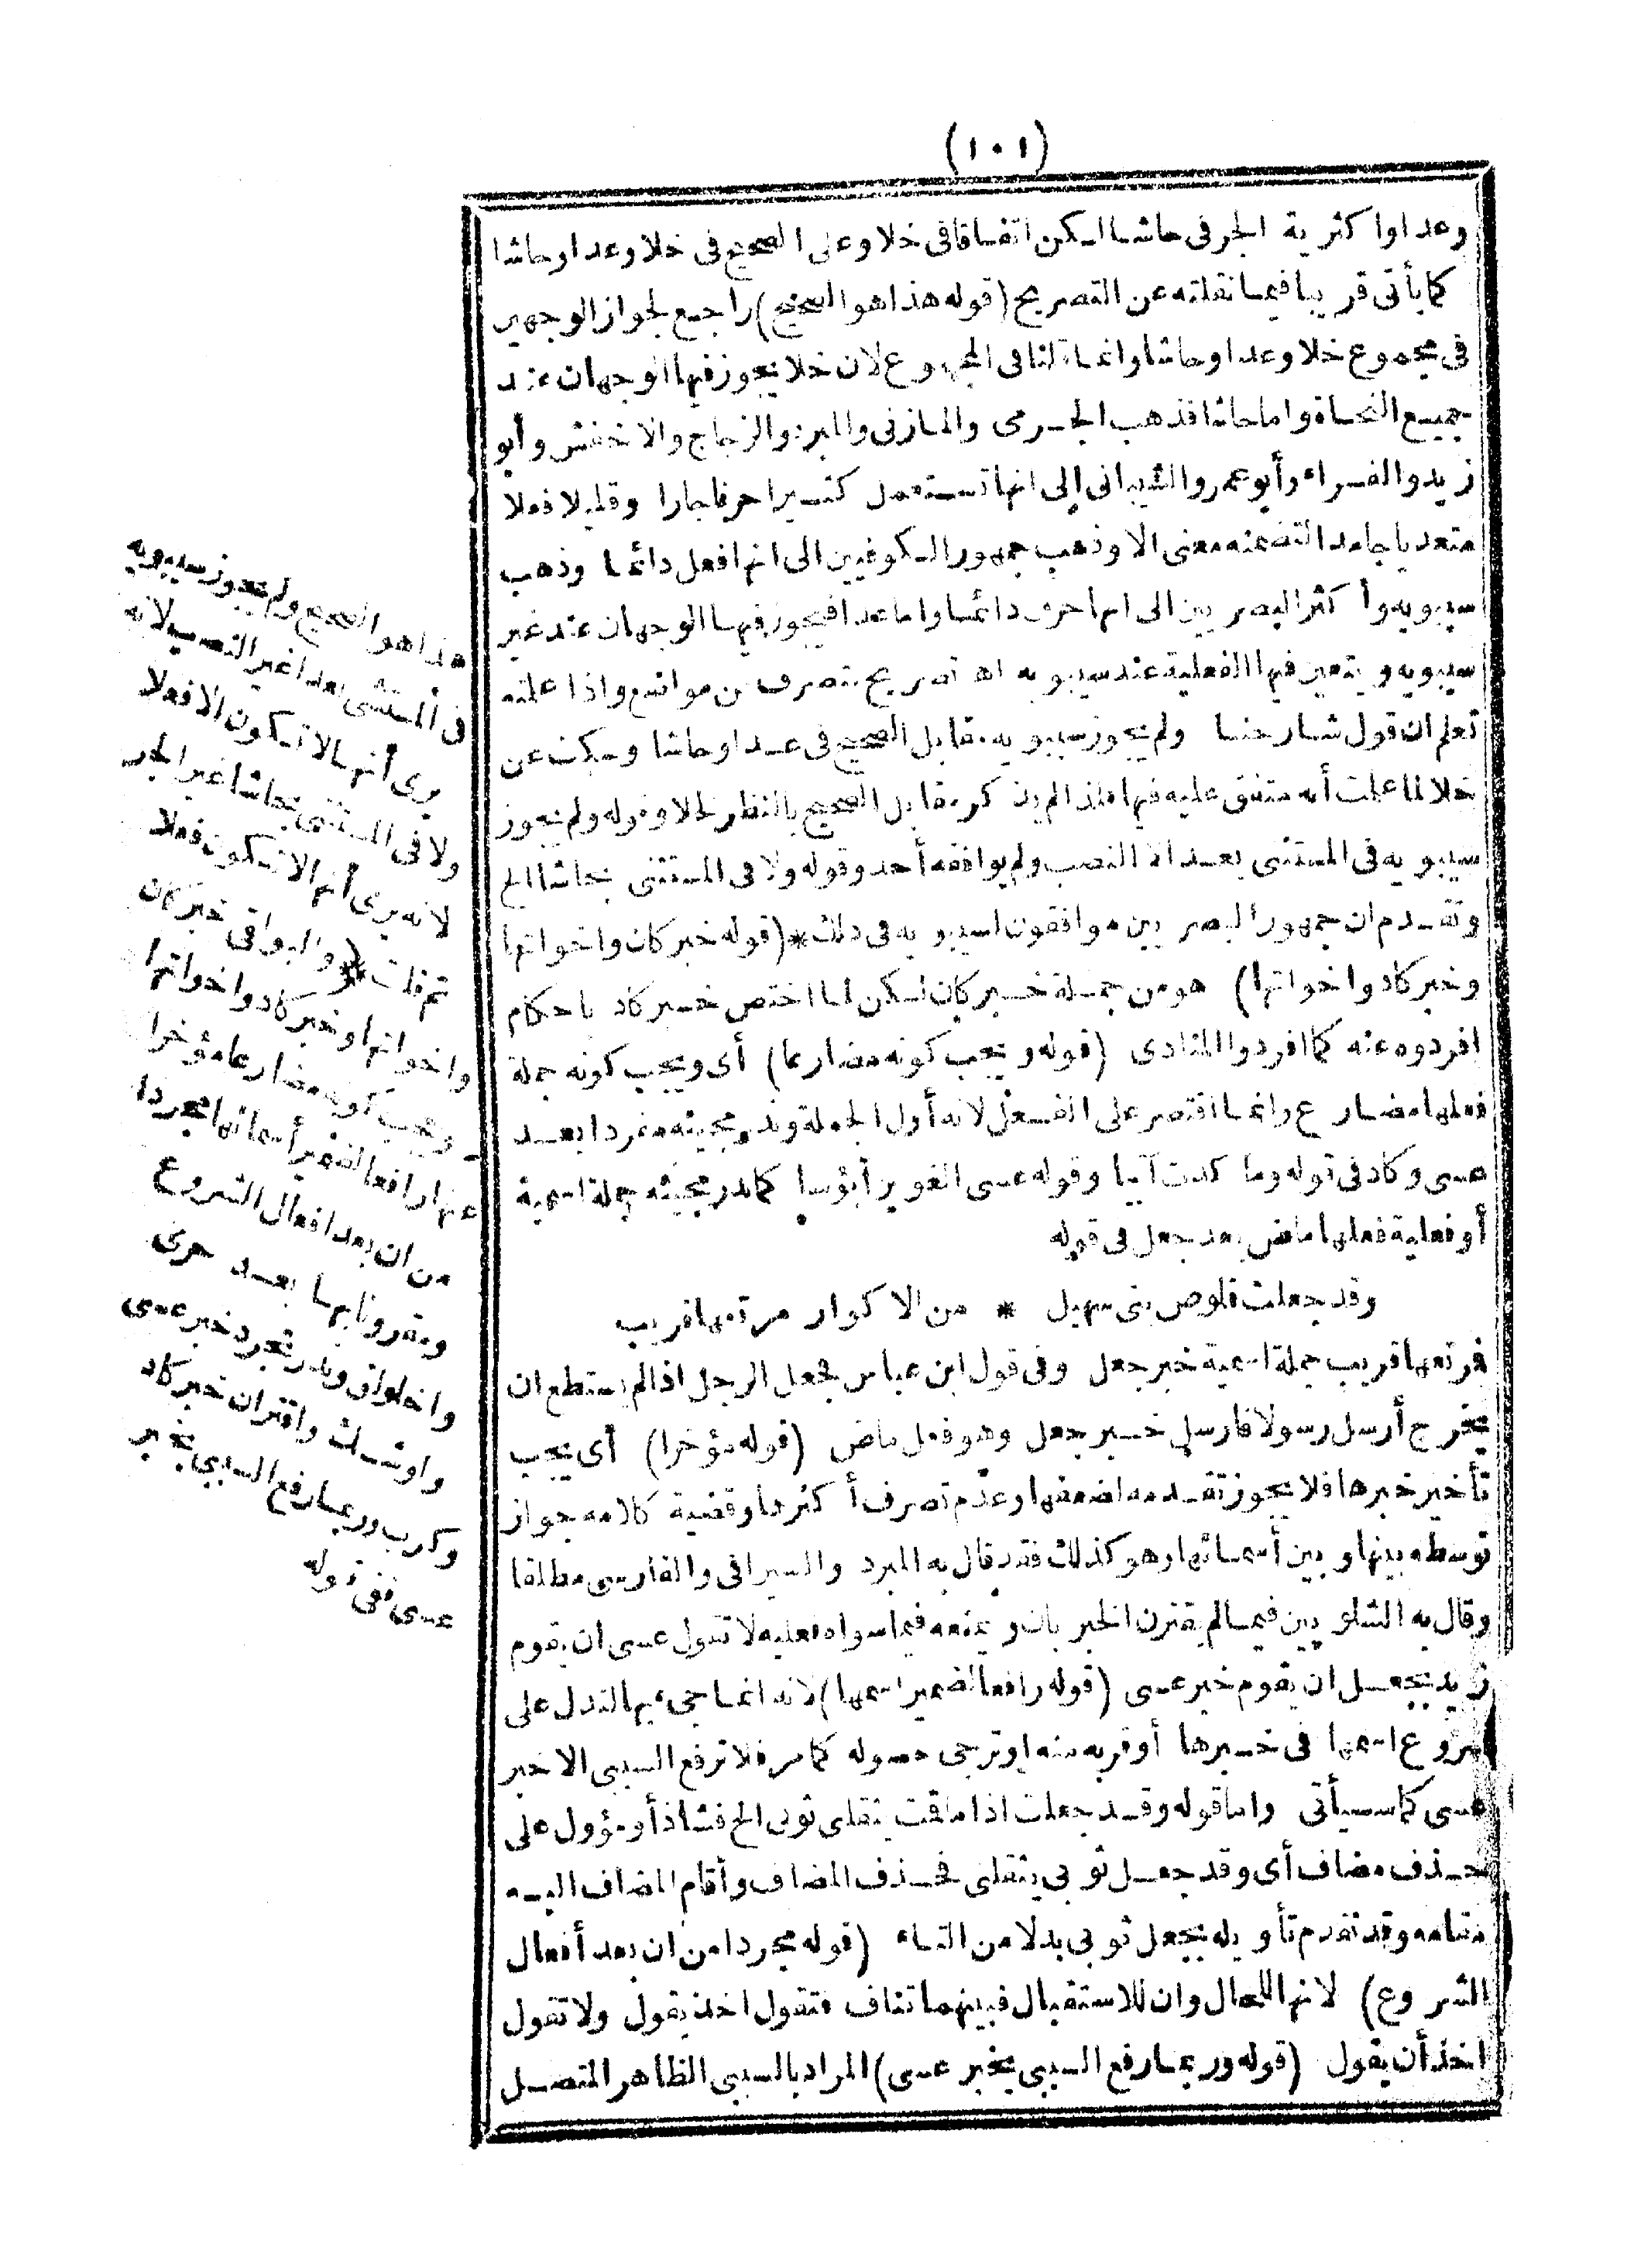 (١٠١)
وعدا واكثرية الجر في حاشا لكن اتفاقا في خلا وعلى الصحيح في خلا وعدا وحاشا
كما يأتي قريبا فيما نقلته عن التصريح (قوله هذا هو الصحيح) راجع لجواز الوجهين
في مجموع خلا وعدا وحاشا وانما قلنا في المجموع لان خلا يجوز فيها الوجهان عند
جميع النحاة واما حاشا فذهب الجرمى والمازنى والمبرد والزجاج والاخفش وأبو
زيد والفراء وأبو عمرو الشيبانى الى انها تستعمل كثيرا حرفا جارا وقليلا فعلا
متعديا جامدا لتضمنه معنى الا وذهب جمهور الكوفيين الى انها فعل دائما وذهب
سيبويه وأكثر البصريين الى انها حرف دائما واما عدا فيجوز فيها الوجهان عند غير
سيبويه ويتعين فيها الفعلية عند سيبويه اه تصريح بتصرف من مواضع واذا علمته
تعلم ان قول شارحنا ولم يجوز سيبويه مقابل الصحيح في عدا وحاشا وسكت عن
خلا لما علمت أنه متفق عليه فيها فلذا لم يذكر مقابل الصحيح بالنظر لخلا وقوله ولم يجوز
سيبويه في المستثنى بعدا الا النصب ولم يوافقه أحد وقوله ولا في المستثنى بحاشا الخ
وتقدم ان جمهور البصريين موافقون لسيبويه في ذلك * (قوله خبر كان واخواتها
وخبر كاد واخواتها) هو من جملة خبر كان لكن لما اختص خبر كاد باحكام
افردوه عنه كما افردوا المنادى (قوله ويجب كونه مضارعا) أى ويجب كونه جملة
فعلها مضارع وانما اقتصر على الفعل لانه أول الجملة وندر مجيئه مفردا بعد
عسى وكاد في قوله وما كدت آيبا وقوله عسى الغوير أبؤسا كما ندر مجيئه جملة اسمية
أو فعلية فعلها ماض بعد جعل في قوله
وقد جعلت قلوص بنى سهيل * من الاكوار مرتعها قريب
فمرتعها قريب جملة اسمية خبر جعل وفى قول ابن عباس فجعل الرجل اذا لم يستطع ان
يخرج أرسل رسولا فارسل خبر جعل وهو فعل ماض (قوله مؤخرا) أى يجب
تأخير خبرها فلا يجوز تقدمه لضعفها وعدم تصرف أكثرها وقضية كلامه جواز
توسطه بينها وبين أسمائها وهو كذلك فقد قال به المبرد والسيرافى والفارسى مطلقا
وقال به الشلوبين فيما لم يقترن الخبر بان ويمنعه فيما سواه فعليه لا تقول عسى ان يقوم
زيد بجعل ان يقوم خبر عسى (قوله رافعا لضمير اسمها) لانه انما جىء بها لتدل على
شروع اسمها في خبرها أو قربه منه او ترجى حصوله كما مر فلا ترفع السببى الا خبر
عسى كما سيأتى واما قوله وقد جعلت اذا ما قمت يثقلنى ثوبى الخ فشاذ أو مؤول على
حذف مضاف أى وقد جعل ثوبى يثقلنى فحذف المضاف وأقام المضاف اليه
مقامه وقد تقدم تأويله بجعل ثوبى بدلا من التاء (قوله مجردا من ان بعد أفعال
الشروع) لانها للحال وان للاستقبال فبينهما تناف فتقول اخذ يقول ولا تقول
اخذ أن يقول (قوله وربما رفع السببى بخبر عسى) المراد بالسببى الظاهر المتصل
هذا هو الصحيح ولم يجوز سيبويه
في المستثنى بعدا غير النصب لانه
يرى أنها لا تكون الا فعلا
ولا فى المستثنى بحاشا غير الجر
لانه يرى أنها لا تكون فعلا
ثم قلت * (والبواقى خبر كان
واخواتها وخبر كاد واخواتها
ويجب كونه مضارعا مؤخرا
عنها رافعا لضمير أسمائها مجردا
من ان بعد افعال الشروع
ومقرونا بها بعد حرى
واخلولق وندر تجرد خبر عسى
واوشك واقتران خبر كاد
وكرب وربما رفع السببى بخبر
عسى ففى قوله